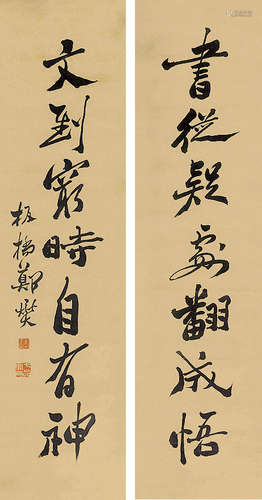 書從疑處翻成悟
文到窮時自有神
板橋鄭燮